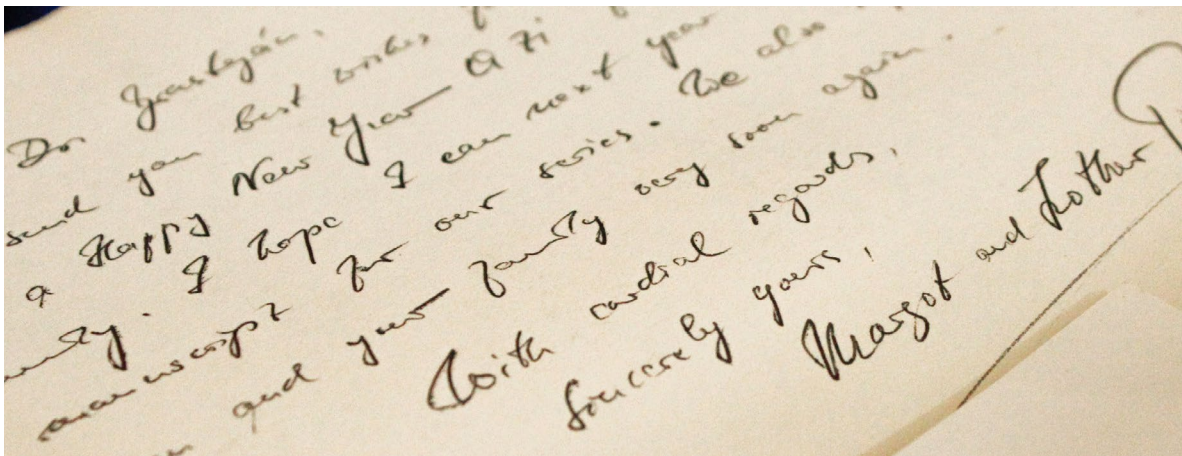 Dr.
send you best wishes
a Happy New Year
I hope I can next year
manuscript for our series. We also
and your family very soon again.
With cordial regards,
Sincerely yours,
Margot and Lothar